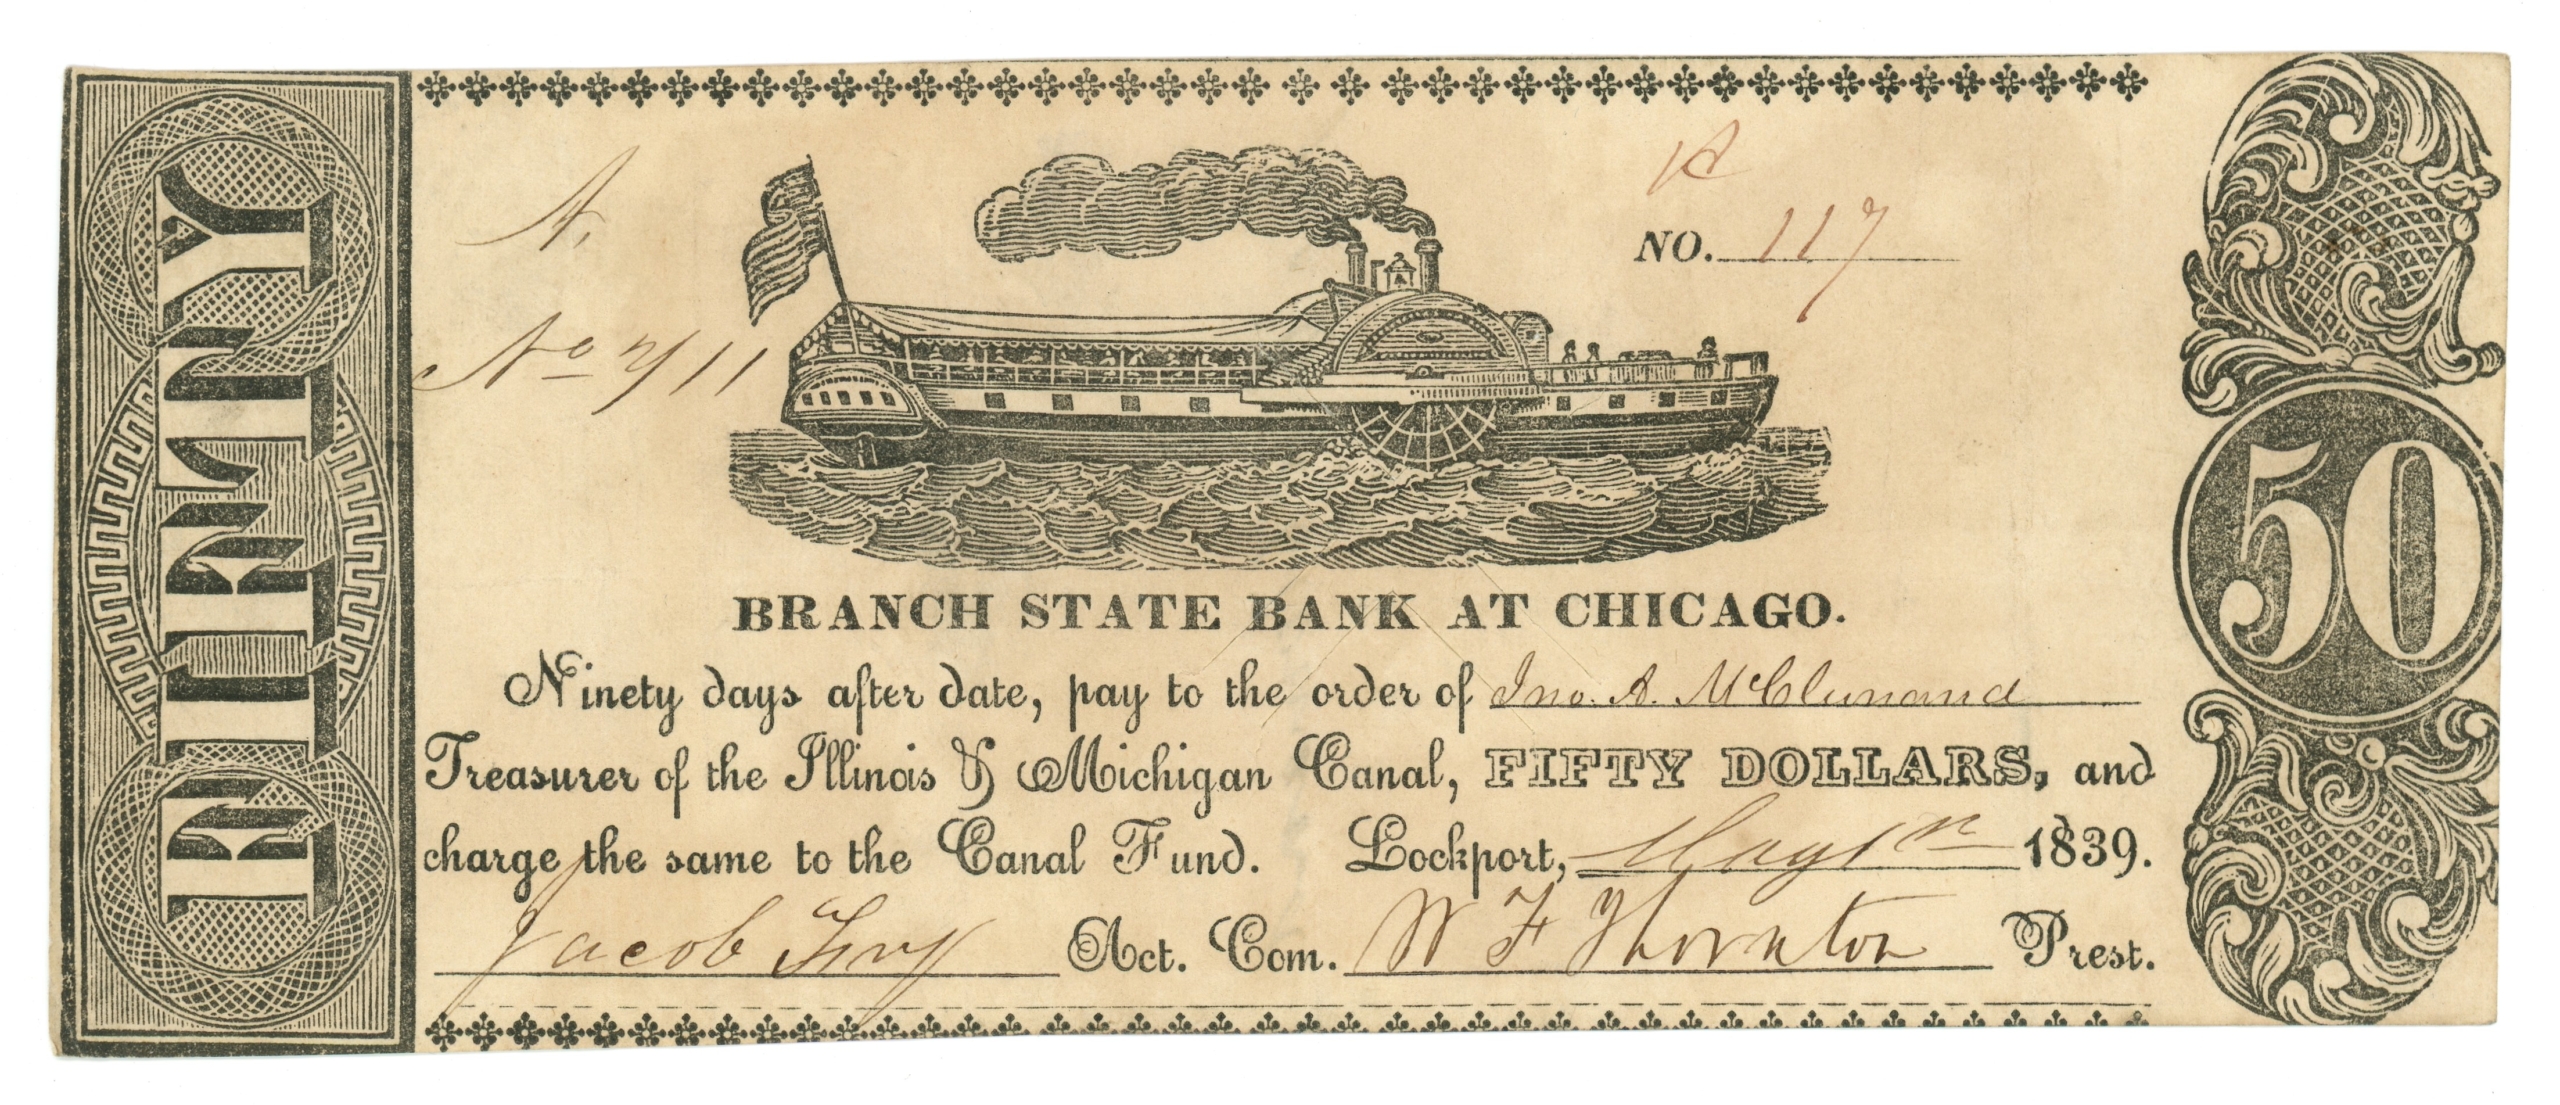 A.
A
NO. 117
BRANCH STATE BANK AT CHICAGO.
Ninety days after date, pay to the order of Jno. A. McClernand
Treasurer of the Illinois & Michigan Canal, FIFTY DOLLARS, and
charge the same to the Canal Fund. Lockport, May 1st 1839.
Jacob Fry Act. Com. W F Thornton Prest.
50